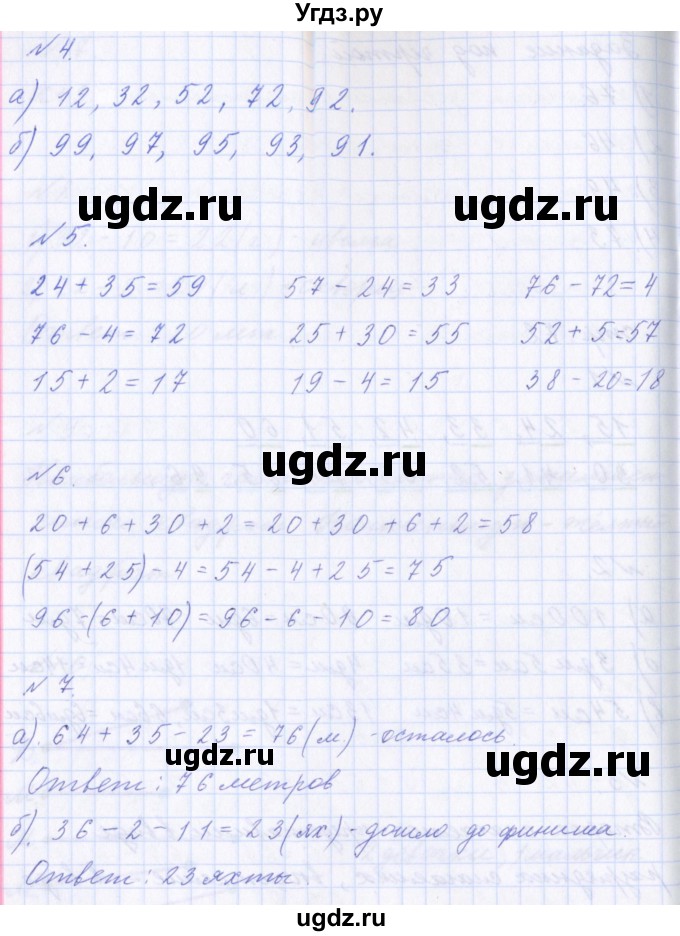 Угдз.ру
№ 4.
а) 12, 32, 52, 72, 92.
б) 99, 97, 95, 93, 91.
ugdz.ru ugdz.ru
№ 5.
24 + 35 = 59 57 - 24 = 33 76 - 72 = 4
76 - 4 = 72 25 + 30 = 55 52 + 5 = 57
15 + 2 = 17 19 - 4 = 15 38 - 20 = 18
ugdz.ru
№ 6.
20 + 6 + 30 + 2 = 20 + 30 + 6 + 2 = 58
(54 + 25) - 4 = 54 - 4 + 25 = 75
96 - (6 + 10) = 96 - 6 - 10 = 80
№ 7.
а). 64 + 35 - 23 = 76 (м) - осталось.
ugdz.ru ugdz.ru
Ответ: 76 метров
б). 36 - 2 - 11 = 23 (ях.) - дошло до финиша
Ответ: 23 яхты
ugdz.ru